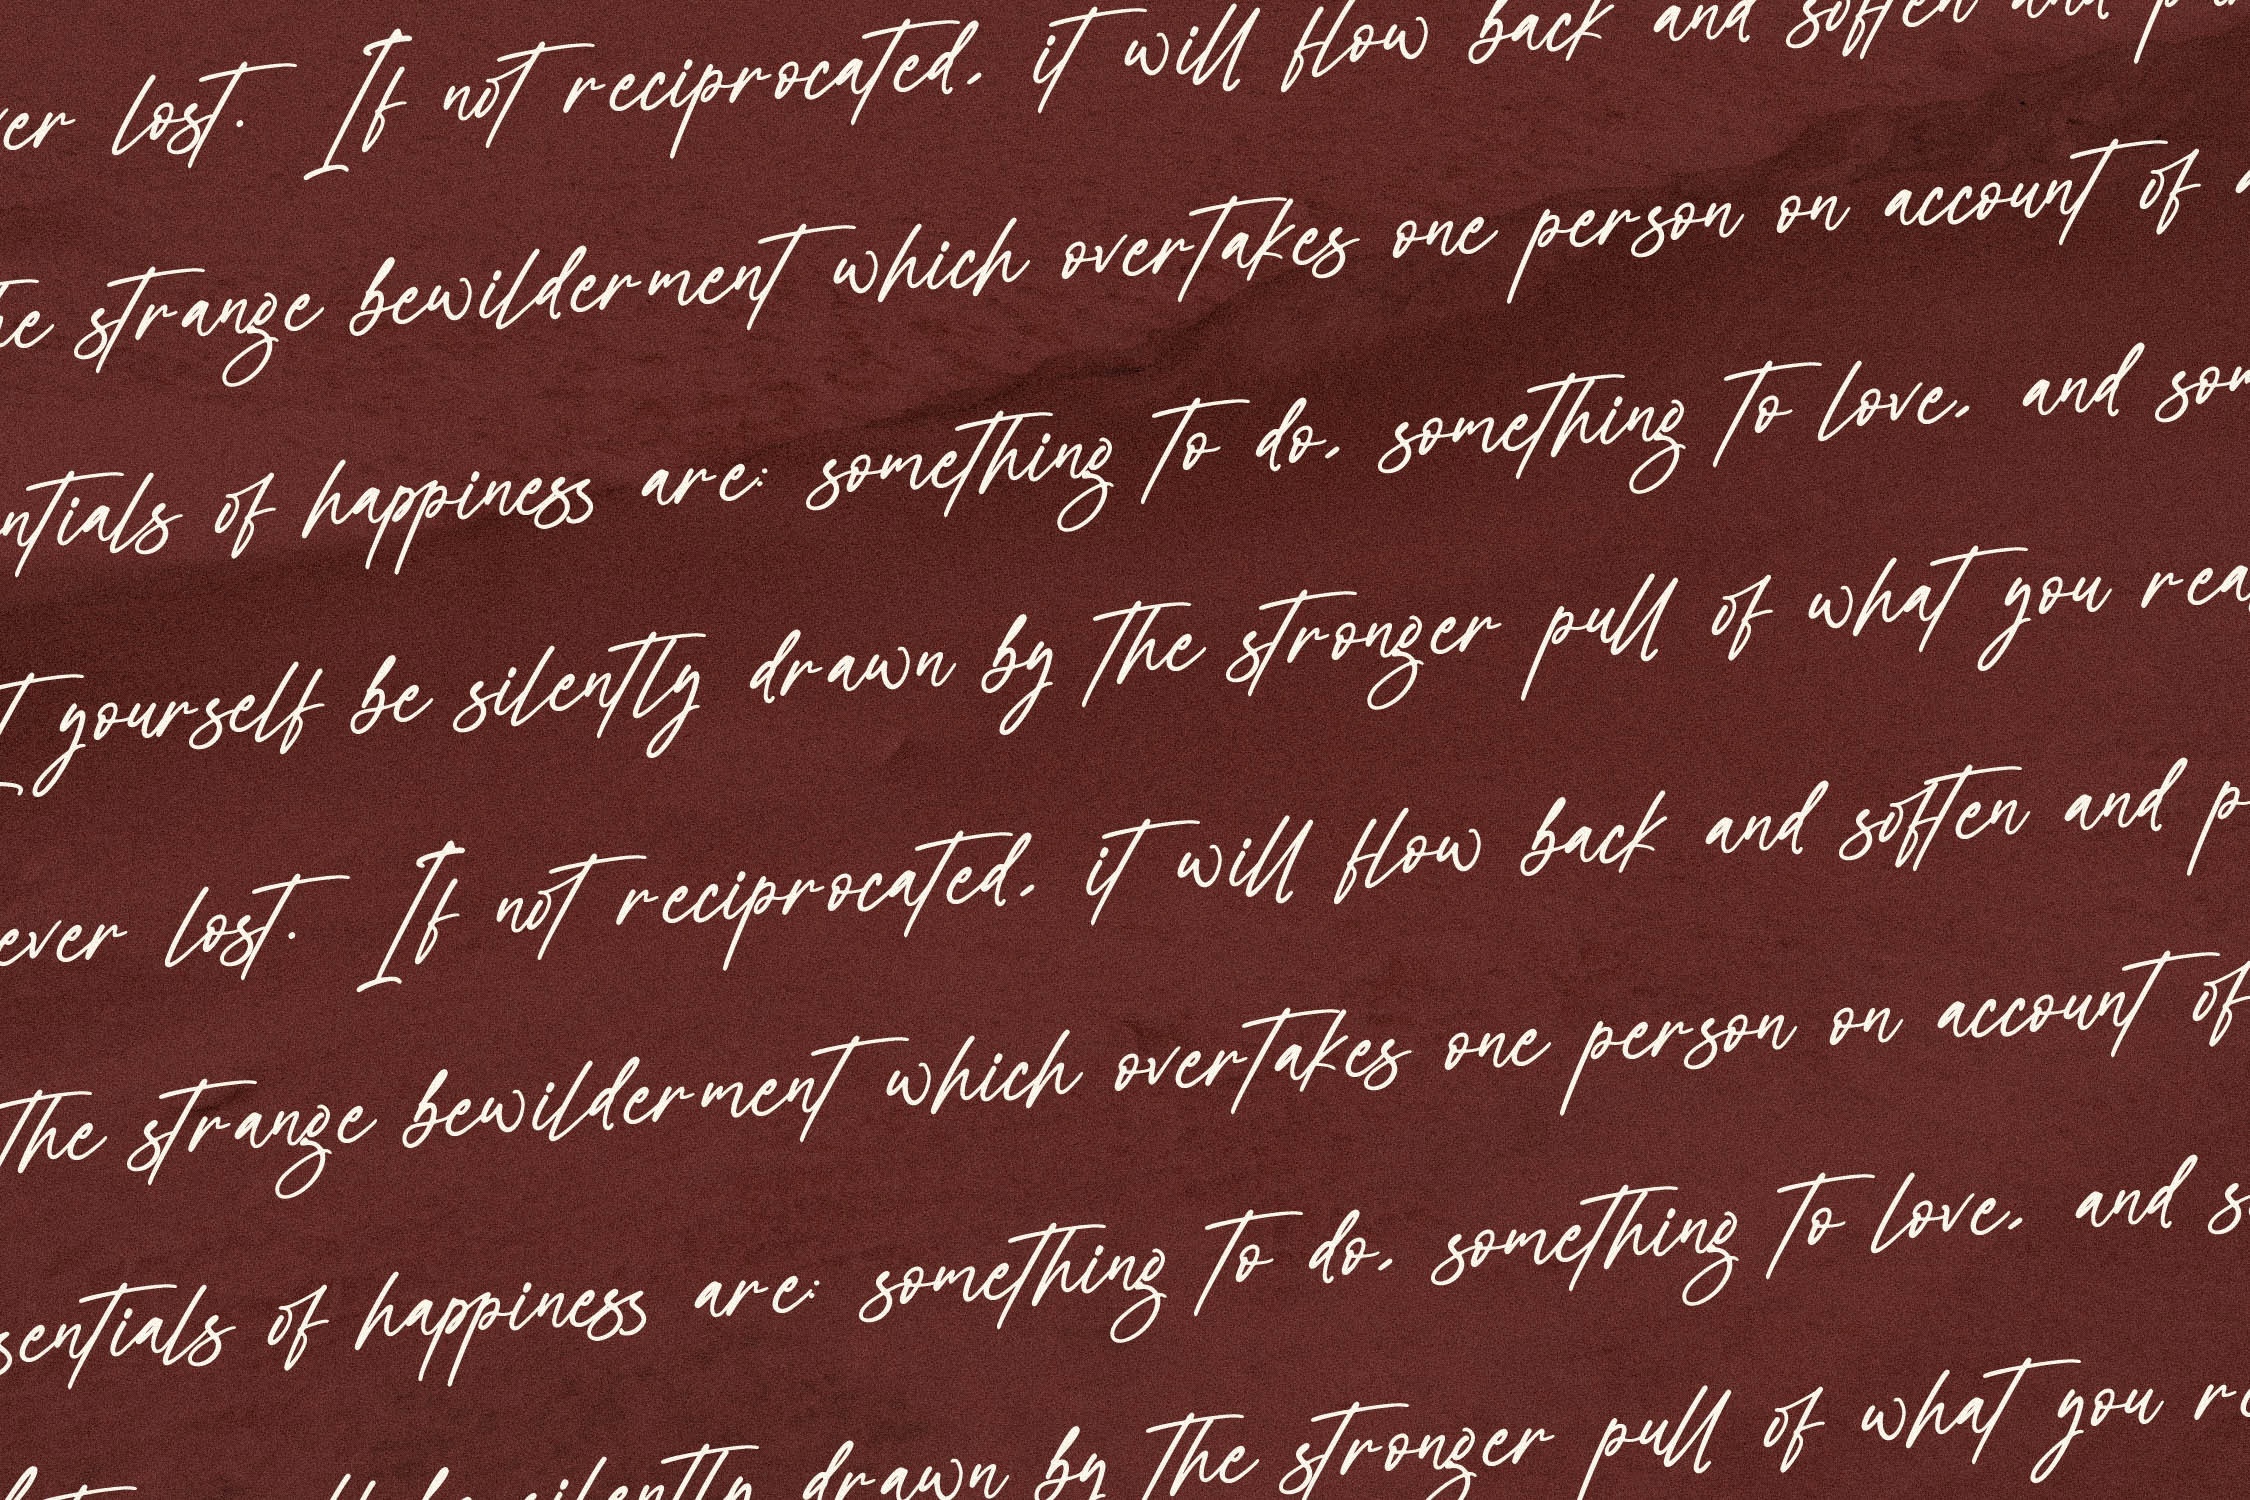 lost. If not reciprocated, it will flow back and soften and
strange bewilderment which overtakes one person on account of
of happiness are: something to do, something to love, and
yourself be silently drawn by the stronger pull of what you
ever lost. If not reciprocated, it will flow back and soften and
the strange bewilderment which overtakes one person on account of
sentials of happiness are: something to do, something to love, and
silently drawn by the stronger pull of what you